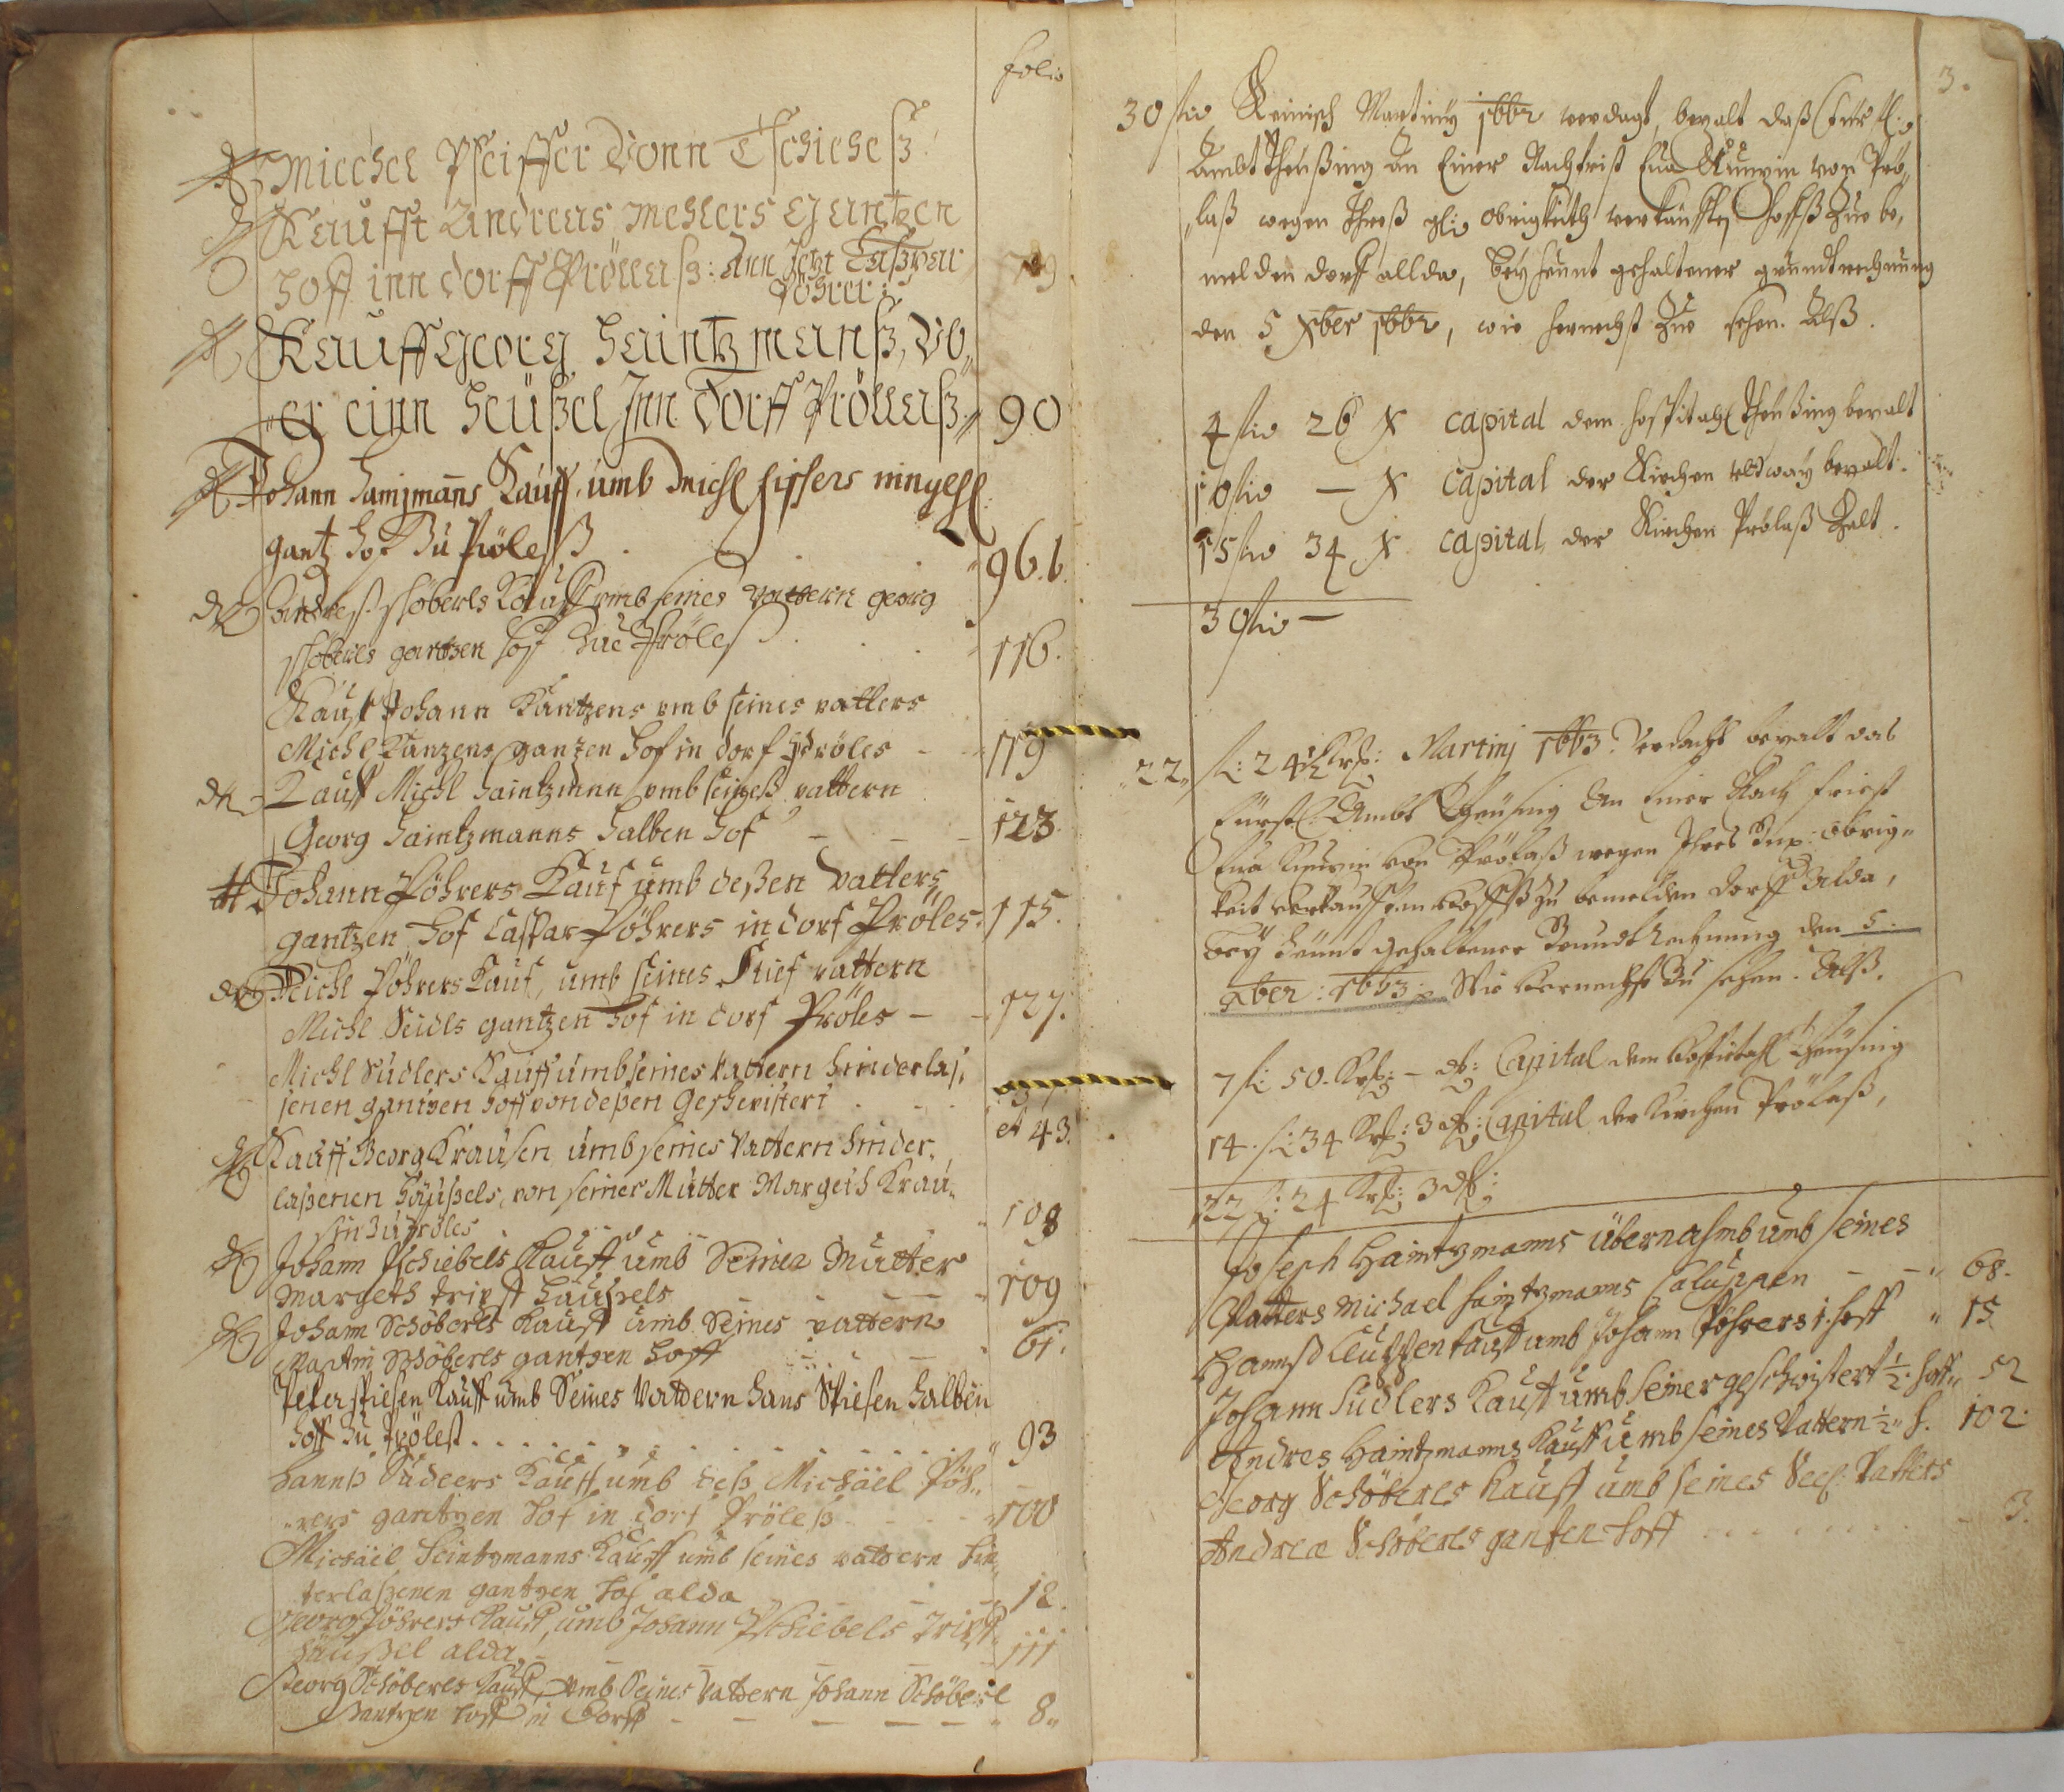 folio
Miechel Pfeiffer Vonn Tschieheß
Kaufft Andreas Mehlers Gantzen
Hoff inn dorff Prölleß: Ann Jetzt Caspar
Pöhrer: 79
Kauff Georg Haintzmanß, Vb„
„er einn Heüßel Jnn Dorff Prölleß 90
Johann Haintzmanns Kauff umb Michl Fischers
gantz hof Zu Pröleß 96.b.
Andreß Schöberls Kauff umb seines vattern georg
schöberls gantzen hof Zue Pröleß 116.
Kauf Johann Kantzens vmb seines vatters
Michl Kanzens gantzen Hof in dorf Pröles 119
Kauff Michl Haintzmann vmb seines vattern
Georg Haintzmanns Halben Hof 123
Johann Pöhrers Kauf umb deßen Vatters
gantzen Hof Caspar Pöhrers in dorf Pröles 115.
Michl Pöhrers Kauf, umb seines Stief vattern
Michl Seidls gantzen Hof in dorf Pröles 127.
Michl Sudlers Kauff umb seines vattern hinderlas,
senen gantzen hoff von deßen Geschwistert
et 43.
Kauff Georg Krausen umb seines Vattern hinder„
laßenen Häußels, von seiner Mutter Margeth Krau„
sin Zu Pröles 108
Johann Pschiebels Kauff umb Seiner Mutter
Margeth tripst häußels 109
Johann Schöberls Kauff umb Seines vattern
Martin Schöberls gantzen hoff 61.
Peter Spiesen Kauff umb Seines Vattern hans Spiesen halben
hoff Zu Prölest 93
Hannß Sudlers Kauff umb deß Michäel Pöh„
„rers gantzen Hof in dorf Pröleß 100
Michäel Heintzmanns Kauff umb seines vattern hin„
terlaßenen gantzen hof alda 12.
Georg Pöhrers Kauff, umb Johann Pschiebels Tripst
häußel alda 111
Georg Schöberls Kauff, umb Seines Vattern Johann Schöberl
gantzen hoff in Dorff 8„
3.
30 fl Reinisch Martiny 1662 verdagt, bezalt daß Fürstl:
Ambt Theußing an Einer Nachfrist Eva Kunzin von Prö„
„laß wegen Ihreß obrigkeith verkaufften Hoffß Zue be„
melden dorff allda, bey heunt gehaltener grundtrechnung
den 5 Xber 1662, wie hernechst Zue sehen. Alß.
4 fl 26 X Capital dem Hospitahl Theußing bezalt
10 fl — X Capital der Kirchen bezalt.
15 fl 34 X Capital der Kirchen Prölaß Zalt.
30 fl —
22„ fl: 24 Krz: Martinj 1663. Verdacht bezalt das
Fürstl: Ambt Theusing An Einer Nach friest
Eva Kunzin von Prölaß wegen Ihres obrig„
keit verkaufften Hoffß zu bemelden dorff Alda,
bey heunt gehaltener Grundt Rechnung den 5.
Xber: 1663. Wie hernechst Zu sehen. Alß.
7 fl: 50. Krz: – Capital dem Hospitahl Theüsing
14. fl: 34 Krz: 3 Capital der Kirchen Prölaß,
22 fl: 24 Krz: 3
Joseph Haintzmanns übernahmb umb seines
Vatters Michael haintzmanns Caluppen 68.
Hannß Kauff umb Johann Pöhrers 1. hoff 15
Johann Sudlers Kauff umb seiner geschwistert ½ hoff 52
Andres Haintzmanns Kauff umb seines Vattern ½ h. 102.
Georg Schöberls Kauff umb seines Seel: Vatters
Andreæ Schöberls gantzen Hoff 3.